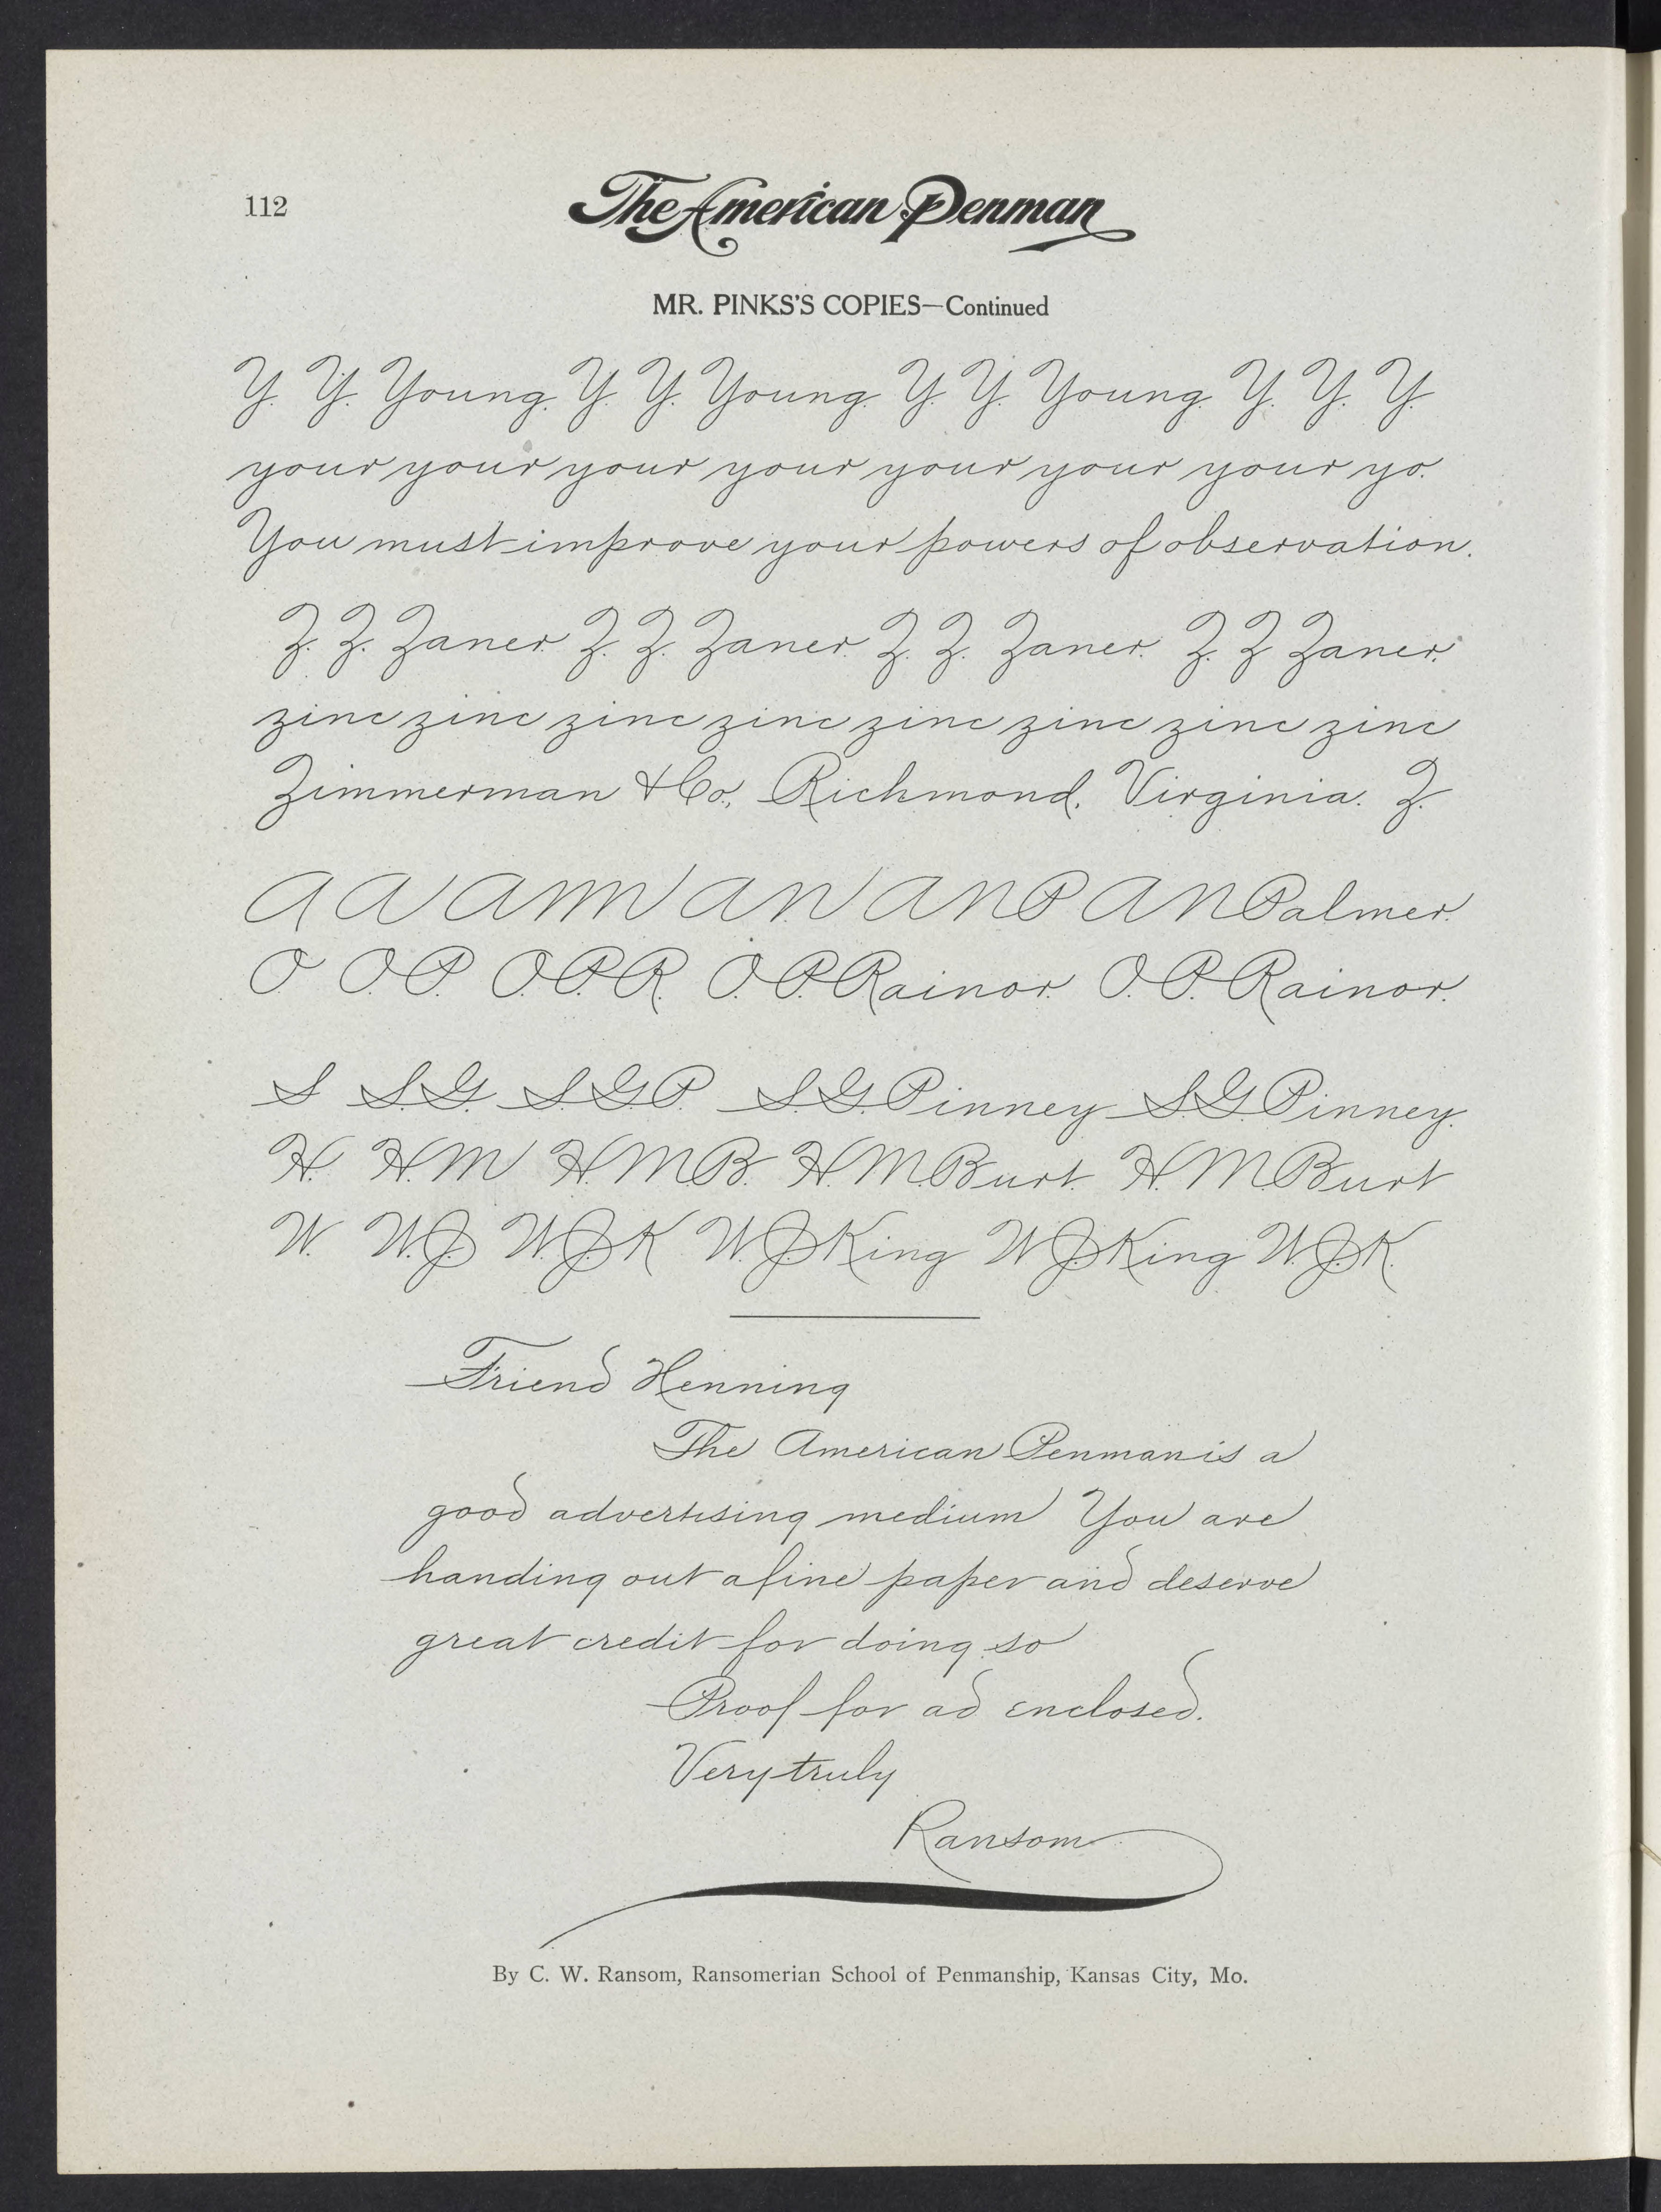 112
The American Penman
MR. PINKS'S COPIES—Continued
Y. Y. Young. Y. Y. Young. Y. Y. Young. Y. Y. Y.
your your your your your your your yo.
You must improve your powers of observation.
Z. Z. Zaner. Z. Z. Zaner. Z. Z. Zaner. Z. Z Zaner.
zinc zinc zinc zinc zinc zinc zinc zinc
Zimmerman & Co., Richmond, Virginia. Z.
A A A M N A. N. A N P A N Palmer.
O O. P. O. P. R. O. P. Rainor. O. P. Rainor.
S S. G. S. G. P. S. G. Pinney S. G. Pinney.
H. H. M H. M. B. H. M. Burt. H. M. Burt
W. W. J. W. J. K W. J. King W J. King W. J. K.
Friend Henning
The American Penman is a
good advertising medium You are
handing out a fine paper and deserve
great credit for doing so
Proof for ad enclosed.
Very truly
Ransom
By C. W. Ransom, Ransomerian School of Penmanship, Kansas City, Mo.